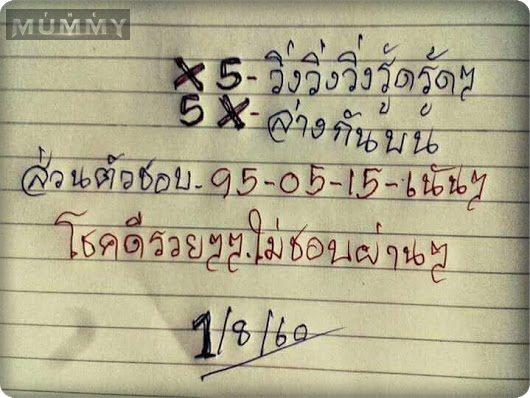 THE
MUMMY
X 5 - วิ่งวิ่งวิ่งรู้ดรู้ดๆ
5 X - ล่างกันบน
ส่วนตัวชอบ - 95-05-15-เน้นๆ
โชคดีรวยๆๆ.ไม่ชอบผ่านๆ
1/8/60